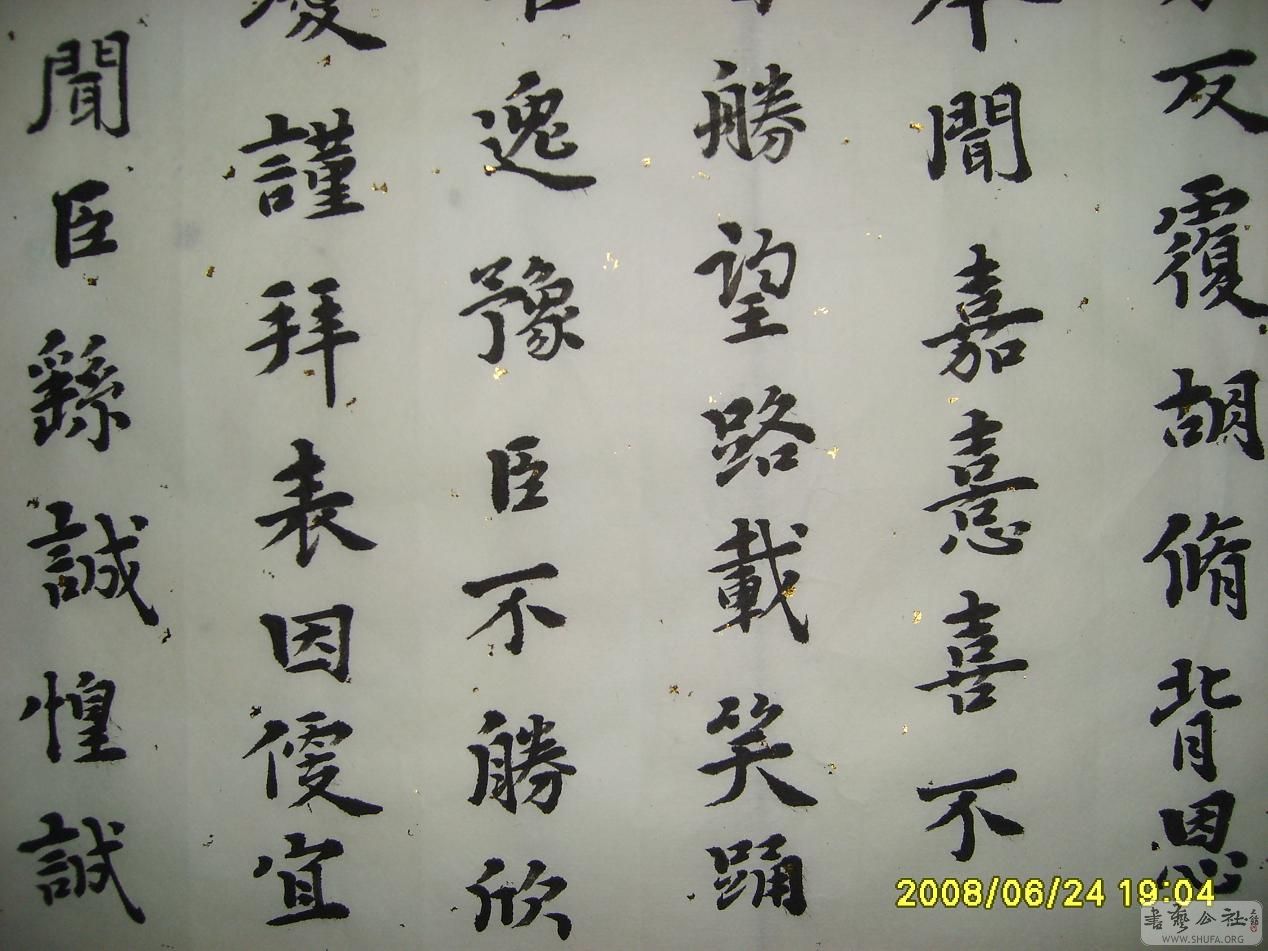 反覆胡脩背恩
聞嘉憙喜不
勝望路載笑踊
逸豫臣不勝欣
謹拜表因便宜
聞臣繇誠惶誠
2008/06/24 19:04
書藝公社
WWW.SHUFA.ORG